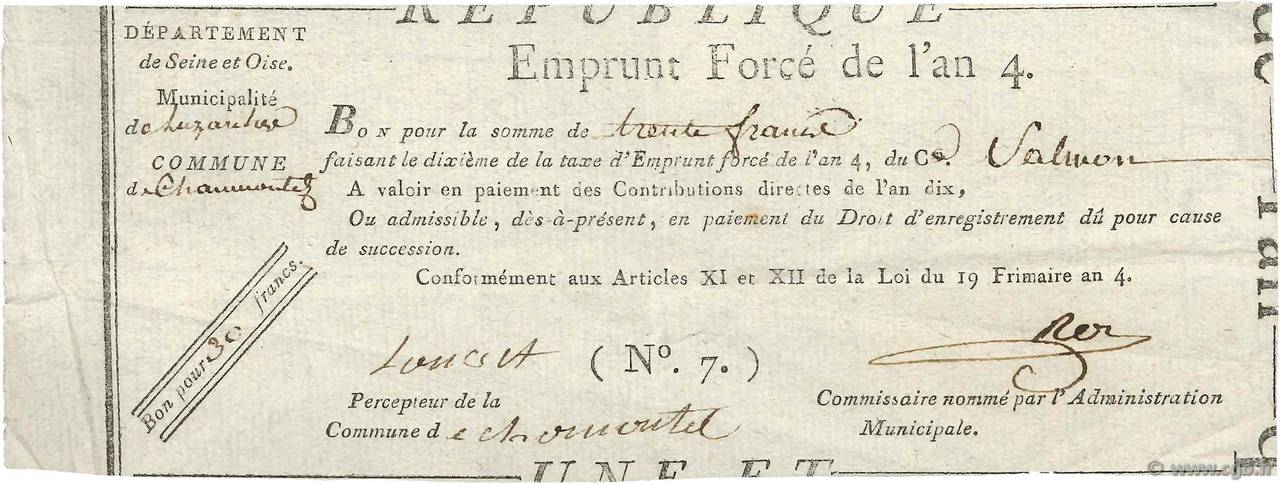 RÉPUBLIQUE
DÉPARTEMENT
de Seine et Oise.
Municipalité
de Luzarches
COMMUNE
de Chaumontel
Emprunt Forcé de l'an 4.
BON pour la somme de trente francs
faisant le dixième de la taxe d'Emprunt forcé de l'an 4, du Cen. Salmon
A valoir en paiement des Contributions directes de l'an dix,
Ou admissible, dès-à-présent, en paiement du Droit d'enregistrement dû pour cause
de succession.
Conformément aux Articles XI et XII de la Loi du 19 Frimaire an 4.
Bon pour 30 francs.
(No. 7.)
Percepteur de la
Commune de chomontel
Commissaire nommé par l'Administration
Municipale.
UNE ET
de l'an
© www.cgb.fr